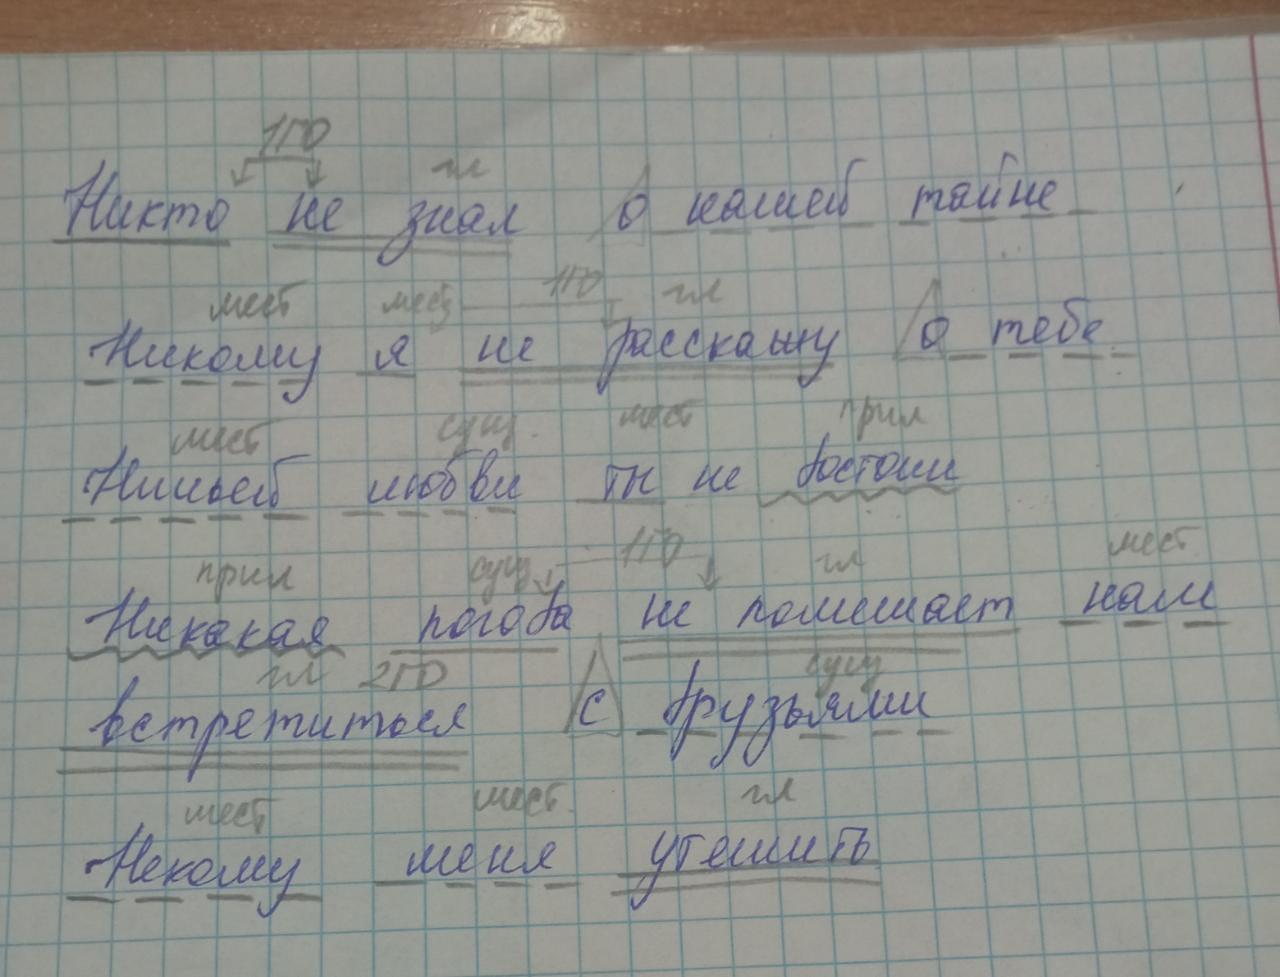 1ГО
гл
Никто не знал о нашей тайне
мест мест 1ГО гл
Никому я не расскажу о тебе
мест сущ. мест прил
Ничьей любви ты не достоин
прил сущ 1ГО гл мест
Никакая погода не помешает нам
гл 2ГО сущ
встретиться с друзьями
мест мест. гл
Некому меня утешить